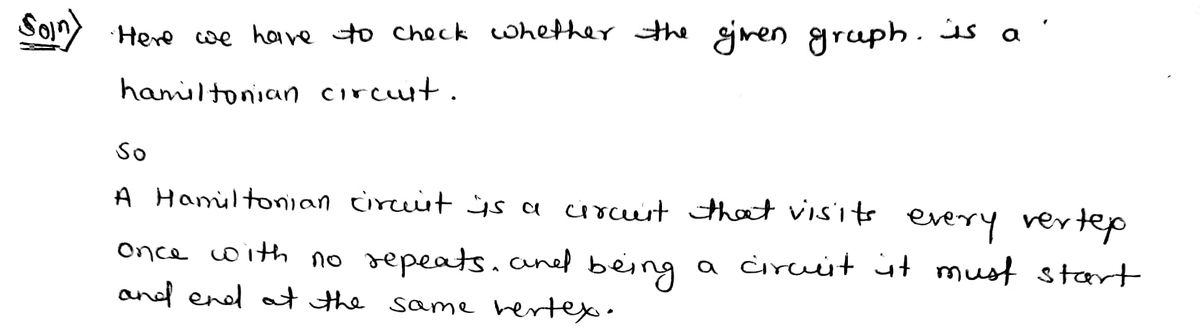 Soln) Here we have to check whether the given graph. is a
hamiltonian circuit.
So
A Hamiltonian circuit is a circuit that visits every vertex
once with no repeats. and being a circuit it must start
and end at the same vertex.